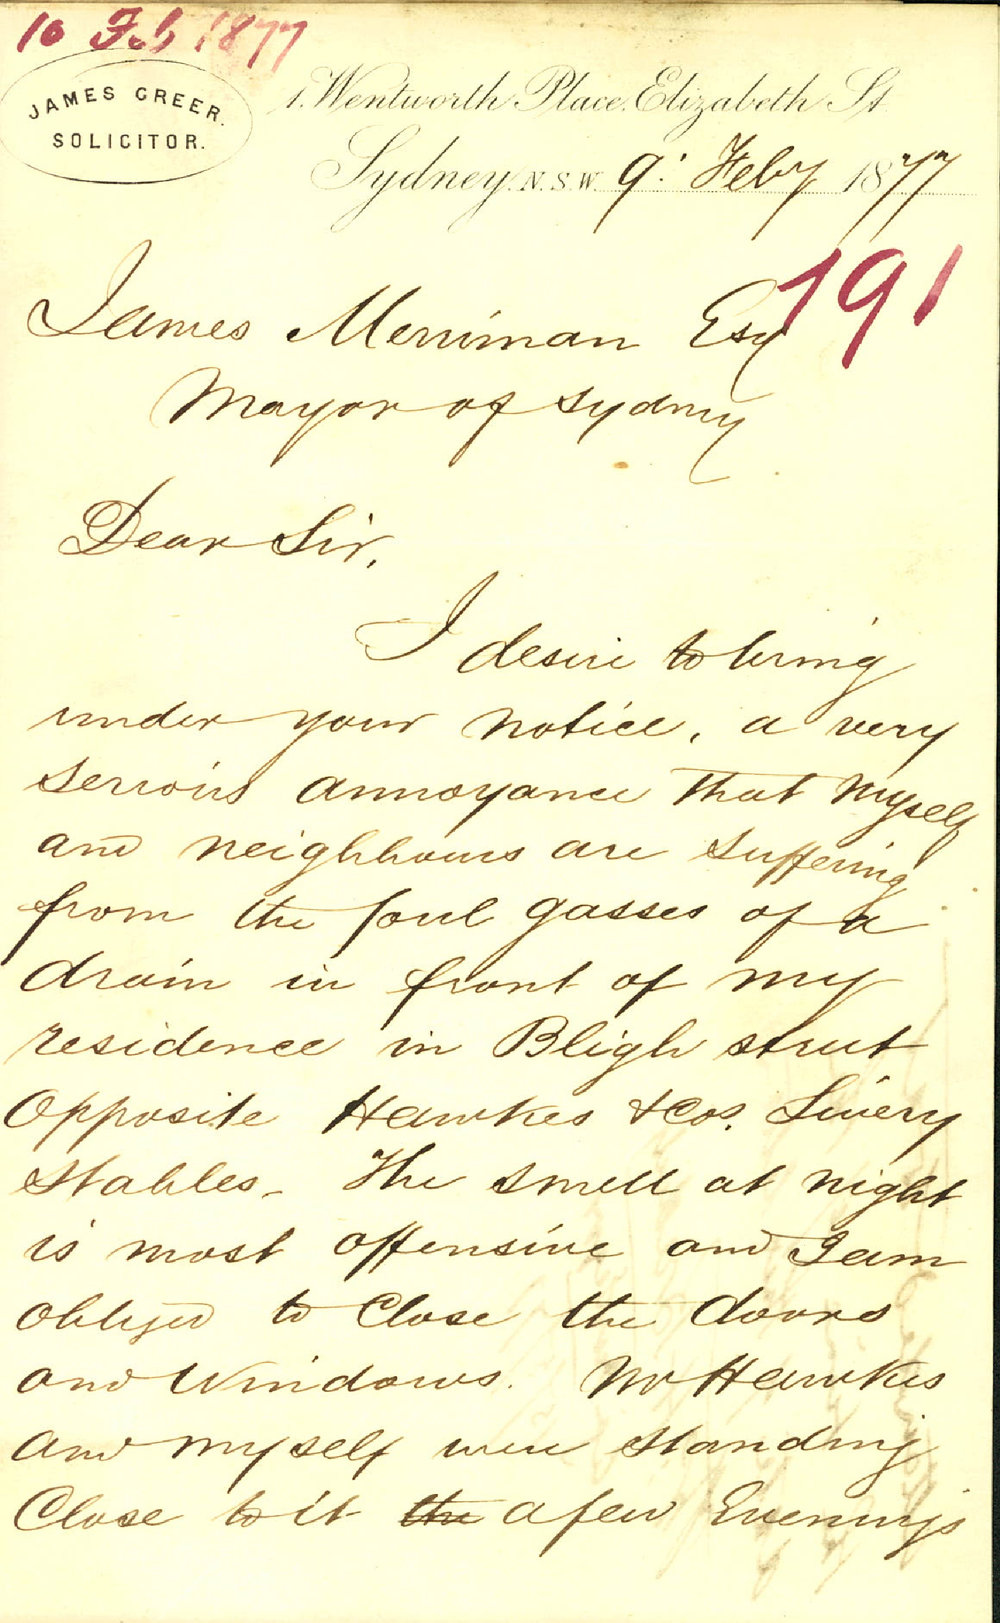 10 Feb 1877
JAMES GREER.
SOLICITOR.
1. Wentworth Place. Elizabeth St.
Sydney. N.S.W. 9. Feby 1877
191
James Merriman Esq
Mayor of Sydney
Dear Sir,
I desire to bring
under your notice, a very
serious annoyance that myself
and neighbours are suffering
from the foul gasses of a
drain in front of my
residence in Bligh street
Opposite Hawkes & Cos. Livery
Stables_ The smell at night
is most offensive and I am
obliged to Close the doors
and Windows. Mr Hawkes
and myself were standing
Close to it the a few Evenings